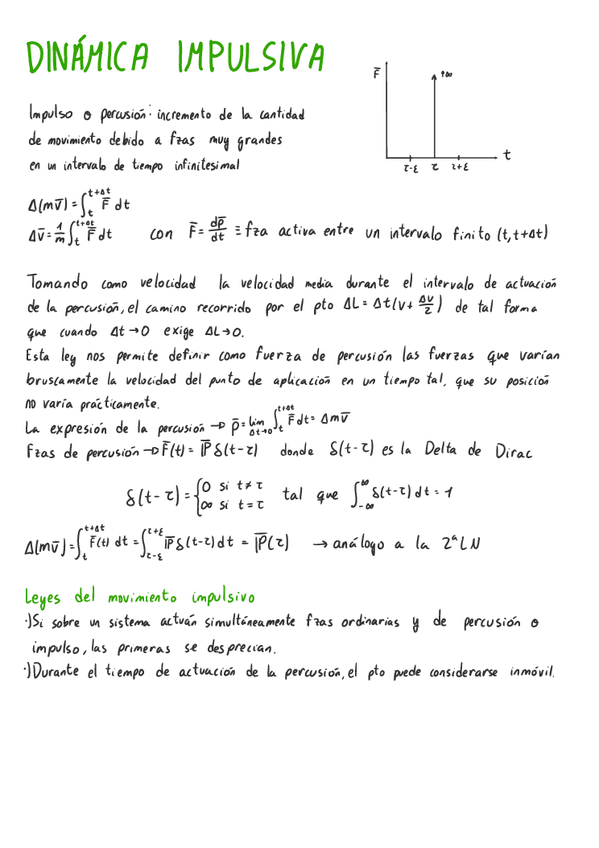 DINÁMICA IMPULSIVA
F̄
+∞
τ-ε τ τ+ε
t
Impulso o percusión: incremento de la cantidad
de movimiento debido a fzas muy grandes
en un intervalo de tiempo infinitesimal
Δ(mv̄)=∫ₜᵗ⁺ᐞᵗ F̄ dt
Δv̄=1/m ∫ₜᵗ⁺ᐞᵗ F̄ dt con F̄= dp̄/dt ≡ fza activa entre un intervalo finito (t,t+Δt)
Tomando como velocidad la velocidad media durante el intervalo de actuación
de la percusión, el camino recorrido por el pto ΔL=Δt(v+ Δv/2) de tal forma
que cuando Δt→0 exige ΔL→0.
Esta ley nos permite definir como fuerza de percusión las fuerzas que varían
bruscamente la velocidad del punto de aplicación en un tiempo tal, que su posición
no varía prácticamente.
La expresión de la percusión → p̄= lim Δt→0 ∫ₜᵗ⁺ᐞᵗ F̄ dt= Δmv̄
Fzas de percusión → F̄(t)= ℙ̄ δ(t-τ) donde δ(t-τ) es la Delta de Dirac
δ(t-τ)={0 si t≠τ
∞ si t=τ tal que ∫_{-∞}^{∞} δ(t-τ)dt=1
Δ(mv̄)=∫ₜᵗ⁺ᐞᵗ F̄(t) dt =∫_{τ-ε}^{τ+ε} ℙ̄ δ(t-τ)dt = ℙ̄(τ) → análogo a la 2ª LN
Leyes del movimiento impulsivo
·)Si sobre un sistema actúan simultáneamente fzas ordinarias y de percusión o
impulso, las primeras se desprecian.
·)Durante el tiempo de actuación de la percusión, el pto puede considerarse inmóvil.